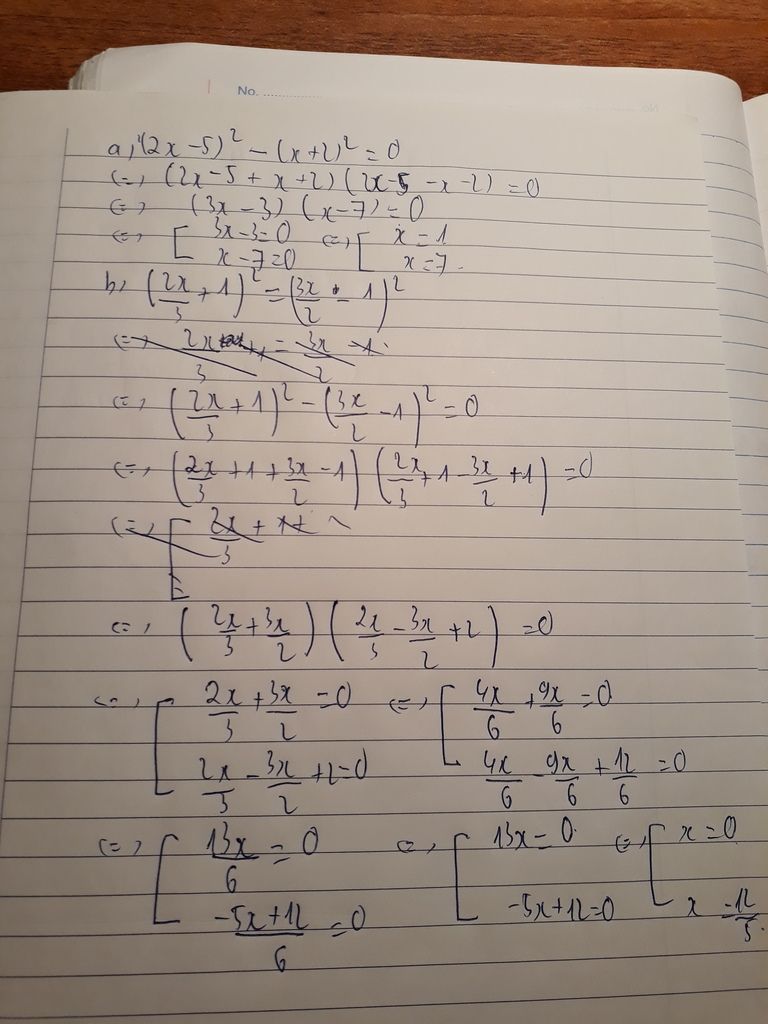 No. ..............
a, (2x - 5)² - (x + 2)² = 0
<=> (2x - 5 + x + 2) (2x - 5 - x - 2) = 0
<=> (3x - 3) (x - 7) = 0
<=> [ 3x - 3 = 0 <=> [ x = 1
x - 7 = 0 x = 7.
b, (2x/3 + 1)² = (3x/2 - 1)²
<=> (2x/3 + 1)² - (3x/2 - 1)² = 0
<=> (2x/3 + 1 + 3x/2 - 1) (2x/3 + 1 - 3x/2 + 1) = 0
<=> (2x/3 + 3x/2) (2x/3 - 3x/2 + 2) = 0
<=> [ 2x/3 + 3x/2 = 0 <=> [ 4x/6 + 9x/6 = 0
2x/3 - 3x/2 + 2 = 0 4x/6 - 9x/6 + 12/6 = 0
<=> [ 13x/6 = 0 <=> [ 13x = 0 <=> [ x = 0
(-5x + 12)/6 = 0 -5x + 12 = 0 x = 12/5.